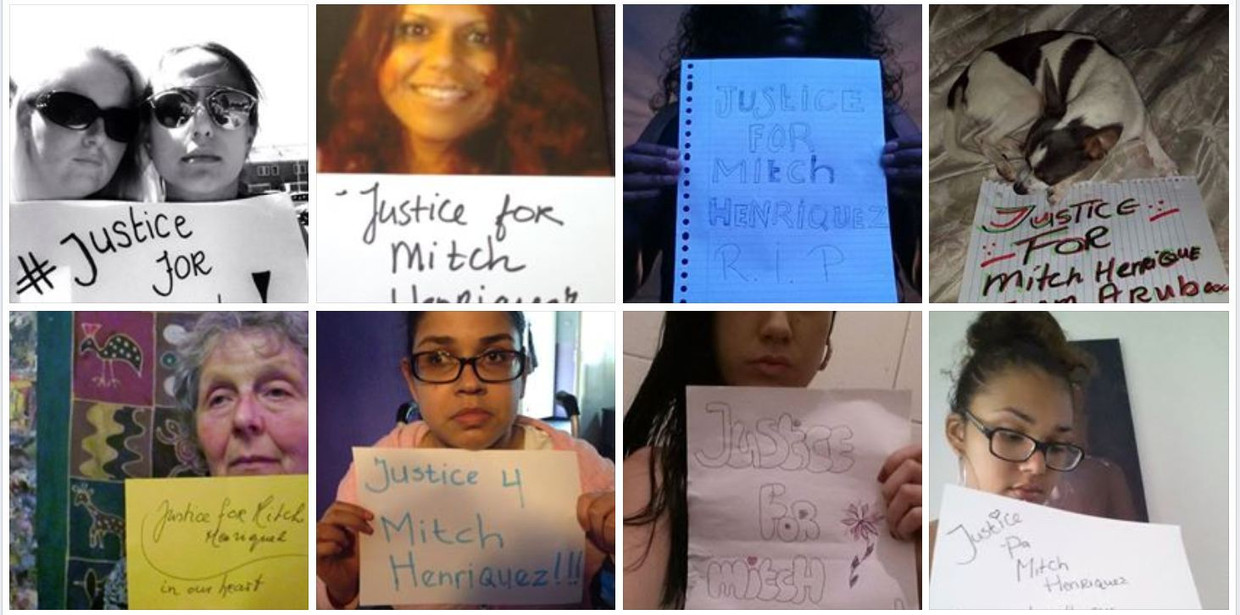 # Justice
FOR
!
- Justice for
Mitch
Henriquez
JUSTICE
FOR
Mitch
HENRIQUEZ
R.I.P
JUSTICE
FOR
Mitch Henrique
From Aruba
Justice for Mitch
Henriquez
in our heart
Justice 4
Mitch
Henriquez!!!
JUSTICE
FOR
MITCH
Justice
Pa
Mitch
Henriquez